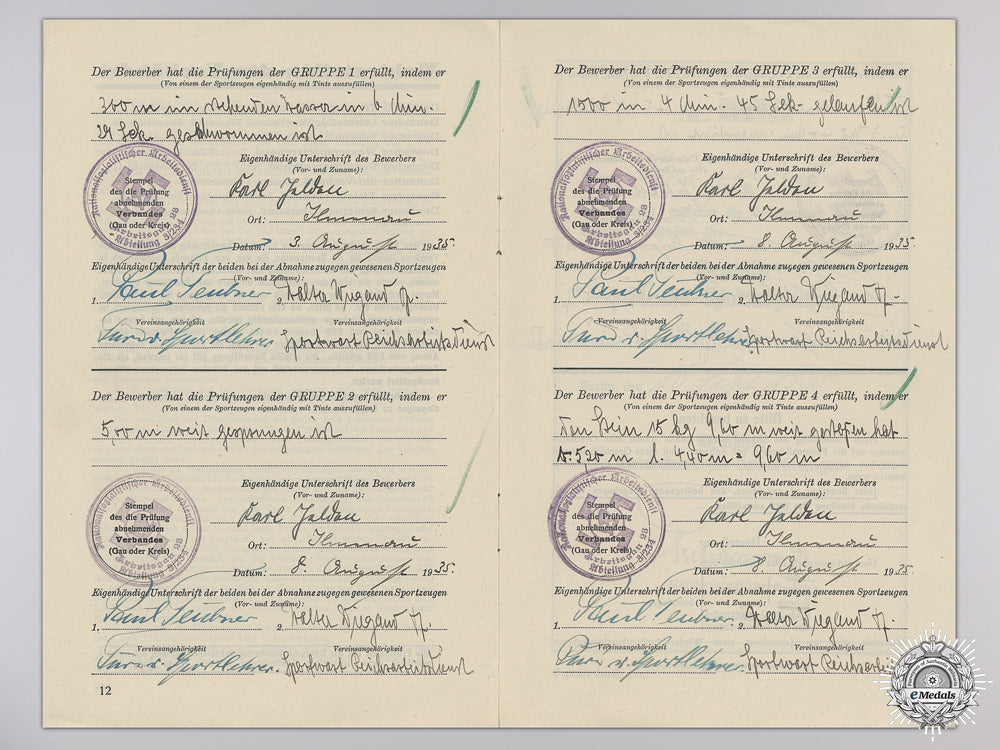 Der Bewerber hat die Prüfungen der GRUPPE 1 erfüllt, indem er
(Von einem der Sportzeugen eigenhändig mit Tinte auszufüllen)
300 m im stehenden Wasser in 6 Min.
29 Sek. geschwommen ist
Nationalsozialistischer Arbeitsdienst
Stempel
des die Prüfung
abnehmenden
Verbandes
(Gau oder Kreis)
Arbeitsgau 28
Abteilung 3/234
Eigenhändige Unterschrift des Bewerbers
(Vor- und Zuname):
Karl
Ort: Ilmenau
Datum: 3. August 1935.
Eigenhändige Unterschrift der beiden bei der Abnahme zugegen gewesenen Sportzeugen
(Vor- und Zuname):
1. Paul Teubner 2. Walter Wiegand
Vereinsangehörigkeit Vereinsangehörigkeit
Turn u. Sportlehrer. Sportwart Reichsarbeitsdienst
Der Bewerber hat die Prüfungen der GRUPPE 2 erfüllt, indem er
(Von einem der Sportzeugen eigenhändig mit Tinte auszufüllen)
5,00 m weit gesprungen ist
Nationalsozialistischer Arbeitsdienst
Stempel
des die Prüfung
abnehmenden
Verbandes
(Gau oder Kreis)
Arbeitsgau 28
Abteilung 3/234
Eigenhändige Unterschrift des Bewerbers
(Vor- und Zuname):
Karl
Ort: Ilmenau
Datum: 8. August 1935.
Eigenhändige Unterschrift der beiden bei der Abnahme zugegen gewesenen Sportzeugen
(Vor- und Zuname):
1. Paul Teubner 2. Walter Wiegand
Vereinsangehörigkeit Vereinsangehörigkeit
Turn u. Sportlehrer. Sportwart Reichsarbeitsdienst
12
Der Bewerber hat die Prüfungen der GRUPPE 3 erfüllt, indem er
(Von einem der Sportzeugen eigenhändig mit Tinte auszufüllen)
1500 in 4 Min. 45 Sek. gelaufen ist
Nationalsozialistischer Arbeitsdienst
Stempel
des die Prüfung
abnehmenden
Verbandes
(Gau oder Kreis)
Arbeitsgau 28
Abteilung 3/234
Eigenhändige Unterschrift des Bewerbers
(Vor- und Zuname):
Karl
Ort: Ilmenau
Datum: 8. August 1935.
Eigenhändige Unterschrift der beiden bei der Abnahme zugegen gewesenen Sportzeugen
(Vor- und Zuname):
1. Paul Teubner 2. Walter Wiegand
Vereinsangehörigkeit Vereinsangehörigkeit
Turn u. Sportlehrer Sportwart Reichsarbeitsdienst
Der Bewerber hat die Prüfungen der GRUPPE 4 erfüllt, indem er
(Von einem der Sportzeugen eigenhändig mit Tinte auszufüllen)
den Stein 15 kg 9,60 m weit gestoßen hat
r. 5,20 m l. 4,40 m = 9,60 m
Nationalsozialistischer Arbeitsdienst
Stempel
des die Prüfung
abnehmenden
Verbandes
(Gau oder Kreis)
Arbeitsgau 28
Abteilung 3/234
Eigenhändige Unterschrift des Bewerbers
(Vor- und Zuname):
Karl
Ort: Ilmenau
Datum: 8. August 1935.
Eigenhändige Unterschrift der beiden bei der Abnahme zugegen gewesenen Sportzeugen
(Vor- und Zuname):
1. Paul Teubner. 2. Walter Wiegand
Vereinsangehörigkeit Vereinsangehörigkeit
Turn u. Sportlehrer. Sportwart
eMedals